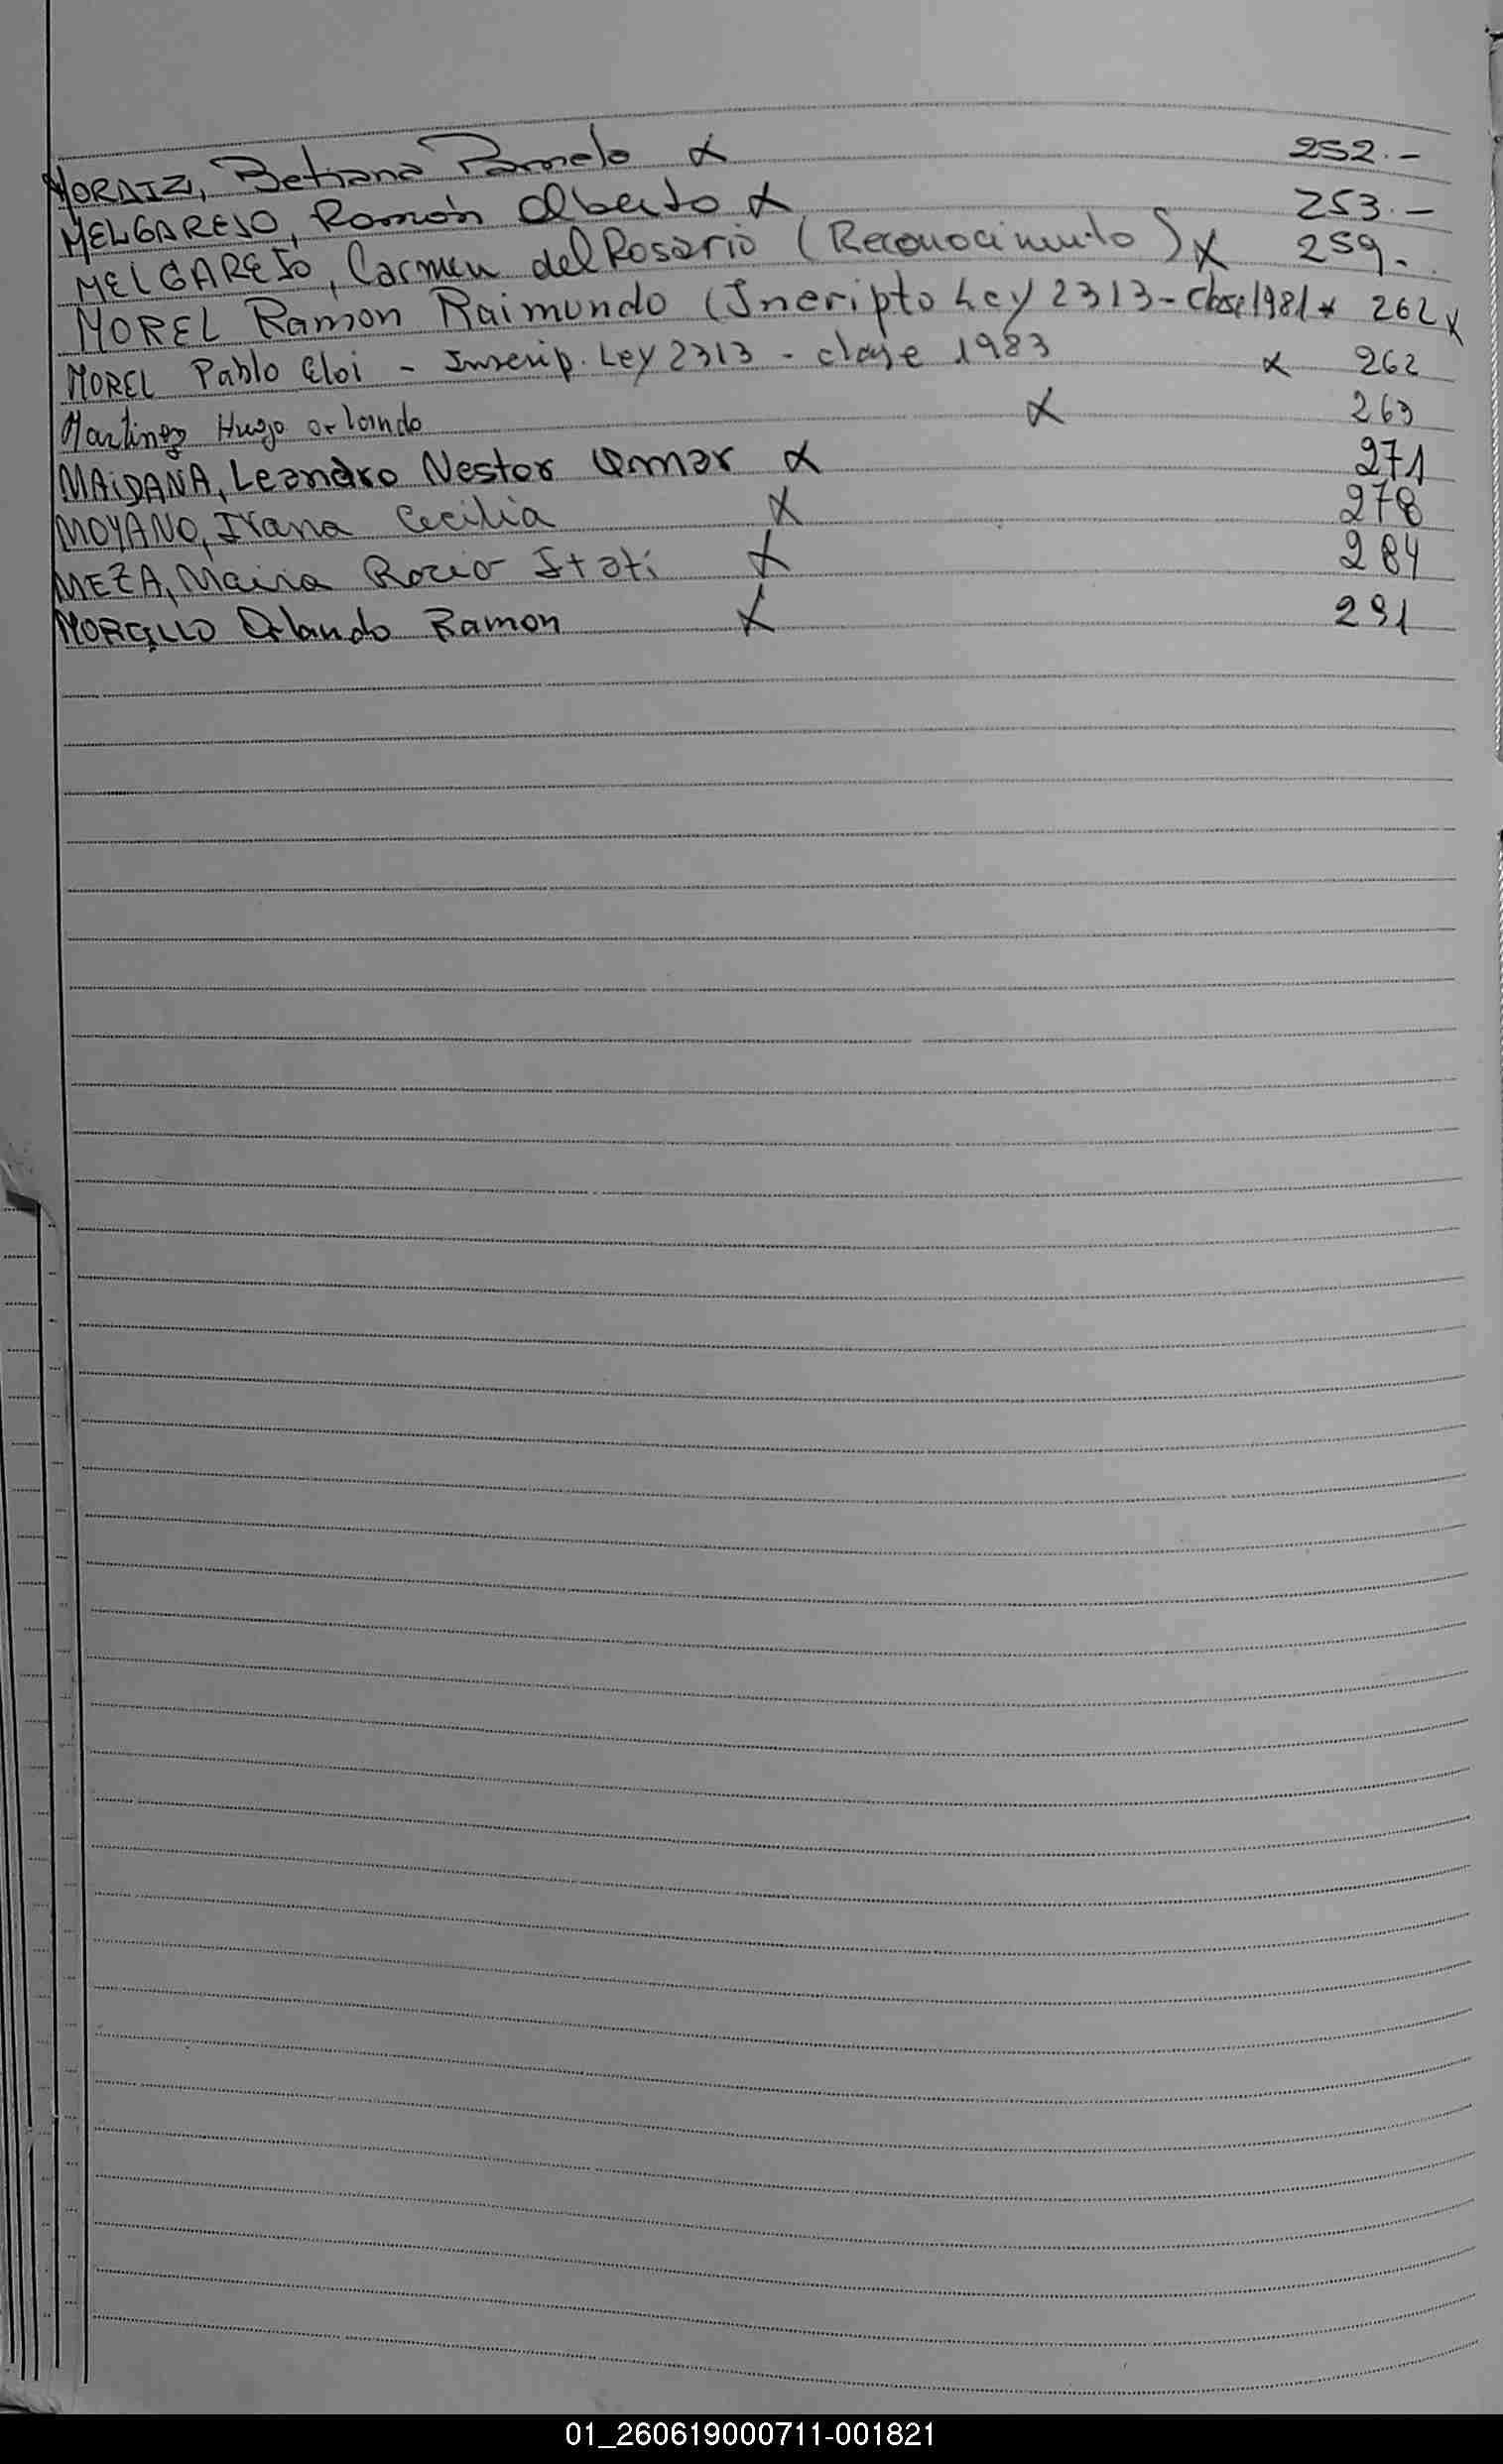 MORAIZ, Betiana Pamela X 252.-
MELGAREJO, Ramón Alberto X 253.-
MELGAREJO, Carmen del Rosario (Reconocimiento) X 259.
MOREL Ramon Raimundo (Incripto Ley 2313 - clase 1981 X 262 X
MOREL Pablo Eloi - Inscrip. Ley 2313 - clase 1983 X 262
Martinez Hugo orlando X 263
MAiDANA, Leandro Nestor Omar X 271
MOYANO, Ivana Cecilia X 278
MEZA, Maira Rocio Itati X 284
MORCILLO Orlando Ramon X 291
01_260619000711-001821